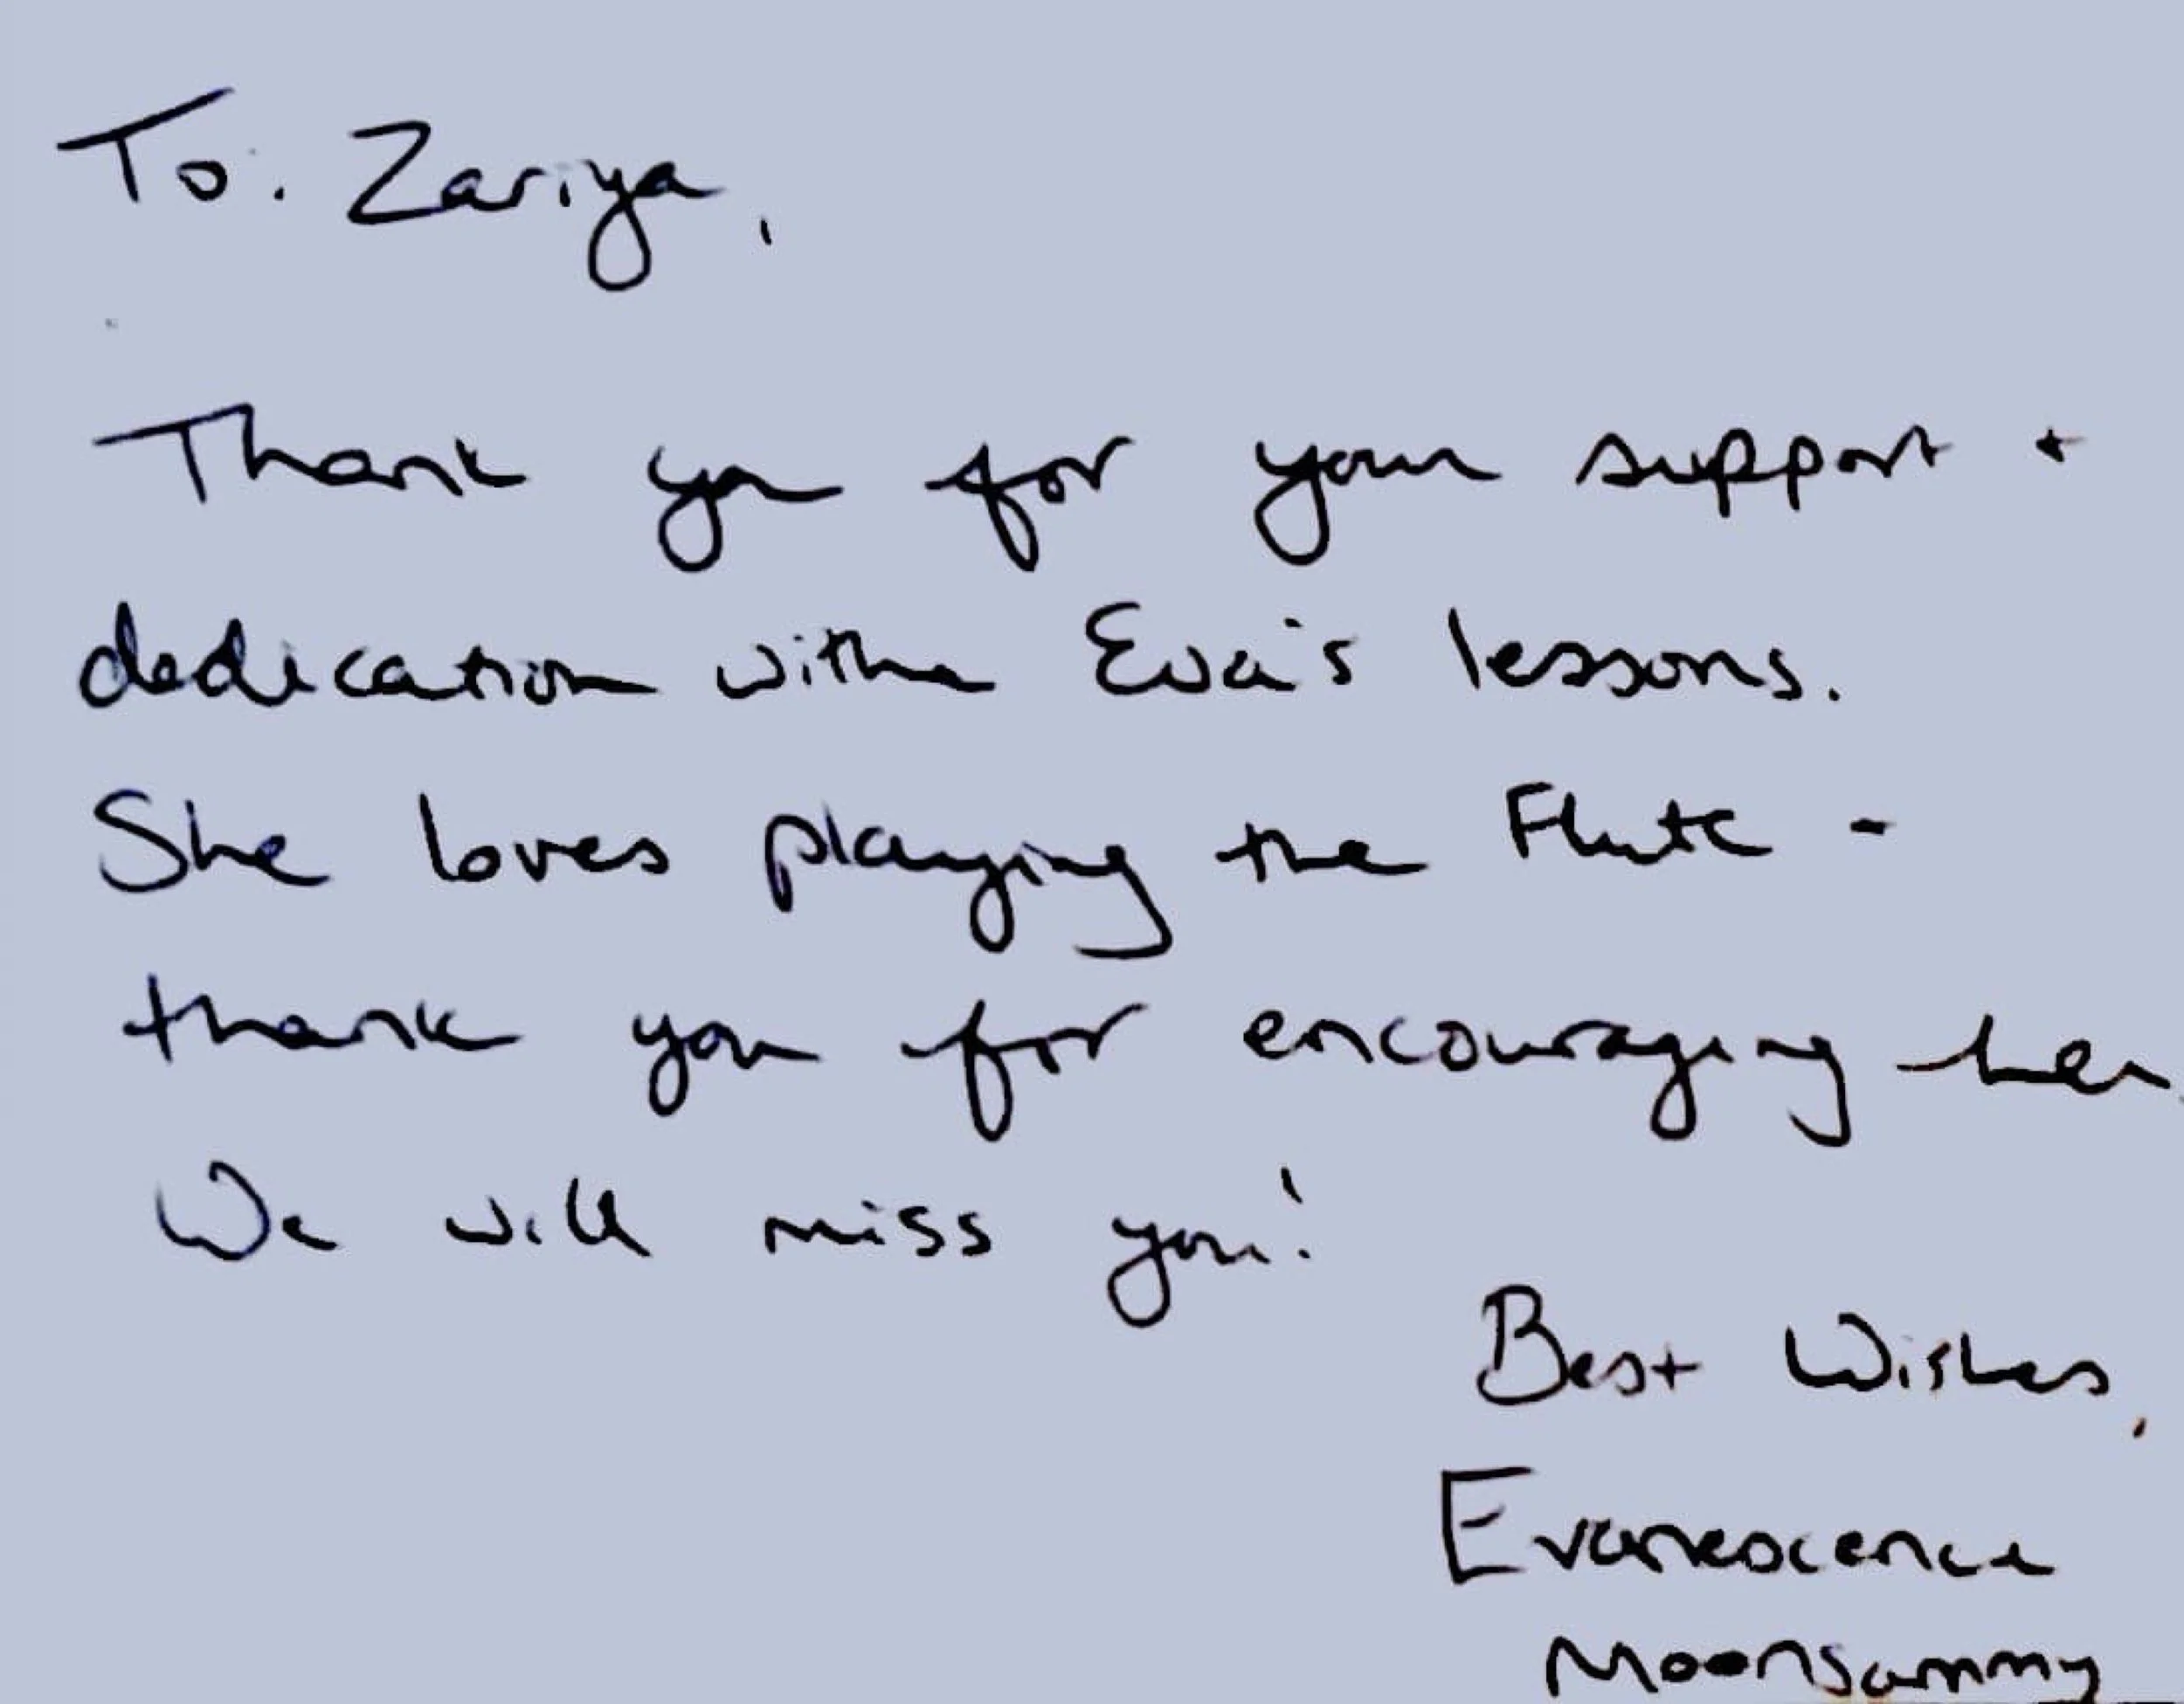 To. Zariya,
Thank you for your support +
dedication with Eva's lessons.
She loves playing the Flute -
thank you for encouraging her.
We will miss you!
Best Wishes,
Evanescence
Moonsammy